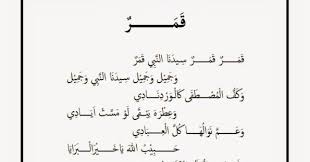 قَمَـــــرٌ
قَمَرٌ قَمَرٌ سِيدَنَا النَّبِي قَمَرٌ
وَجَمِيْل وَجَمِيْل سِيدَنَا النَّبِي وَجَمِيْل
وَكَفُّ الْمُصْطَفَى كَالْوَرْدِ نَادِي
وَعِطْرُهُ يَبْقَى لَوْ مَسَّتْ اَيَادِي
وَعَمَّ نَوَالُهَا كُلَّ الْعِبَادِي
حَبِيْبُ اللهِ يَا خَيْرَ الْبَرَايَا